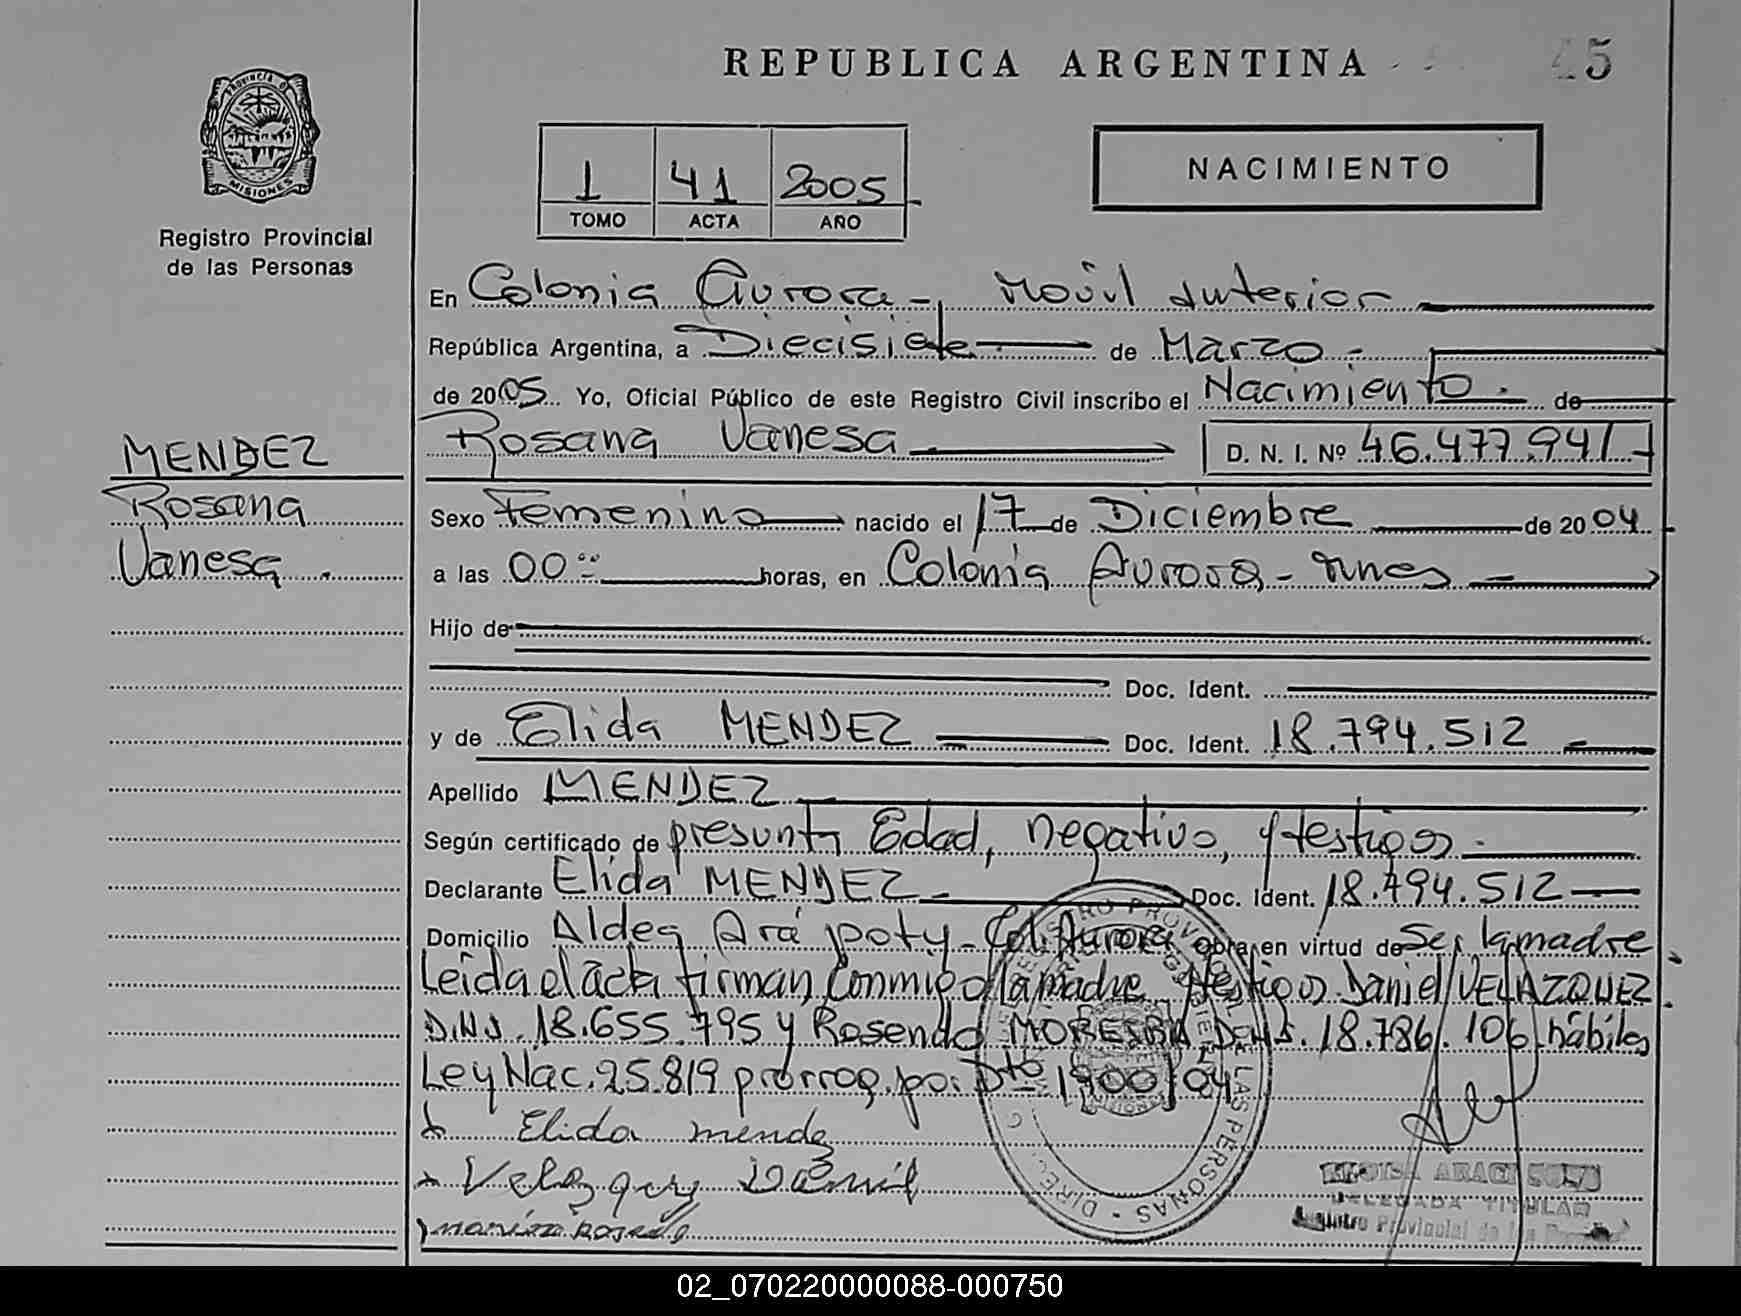 REPUBLICA ARGENTINA
45
PROVINCIA DE
MISIONES
Registro Provincial
de las Personas
1 41 2005
TOMO ACTA AÑO
NACIMIENTO
En Colonia Aurora -, Móvil Interior
República Argentina, a Diecisiete de Marzo -
de 2005 Yo, Oficial Público de este Registro Civil inscribo el Nacimiento. de
Rosana Vanesa D. N. I. Nº 46.477.941
MENDEZ
Rosana
Vanesa
Sexo Femenino nacido el 17 de Diciembre de 2004
a las 00 horas, en Colonia Aurora -
Hijo de
Doc. Ident.
y de Elida MENDEZ Doc. Ident. 18.794.512
Apellido MENDEZ
Según certificado de presunta Edad, negativo, y testigos
Declarante Elida MENDEZ - Doc. Ident. 18.794.512
Domicilio Aldea Ará poty - Col. Aurora Obra en virtud de Ser la madre
Leída el acta firman conmigo la madre y testigos Daniel VELAZQUEZ
D.N.I. 18.655.795 y Rosendo MOREIRA D.N.I. 18.786.106 hábiles
Ley Nac. 25.819 prorrog. por Dto 1900/04
Elida mendez
Velazquez Daniel
DELEGADA TITULAR
Registro Provincial de las Personas
02_070220000088-000750